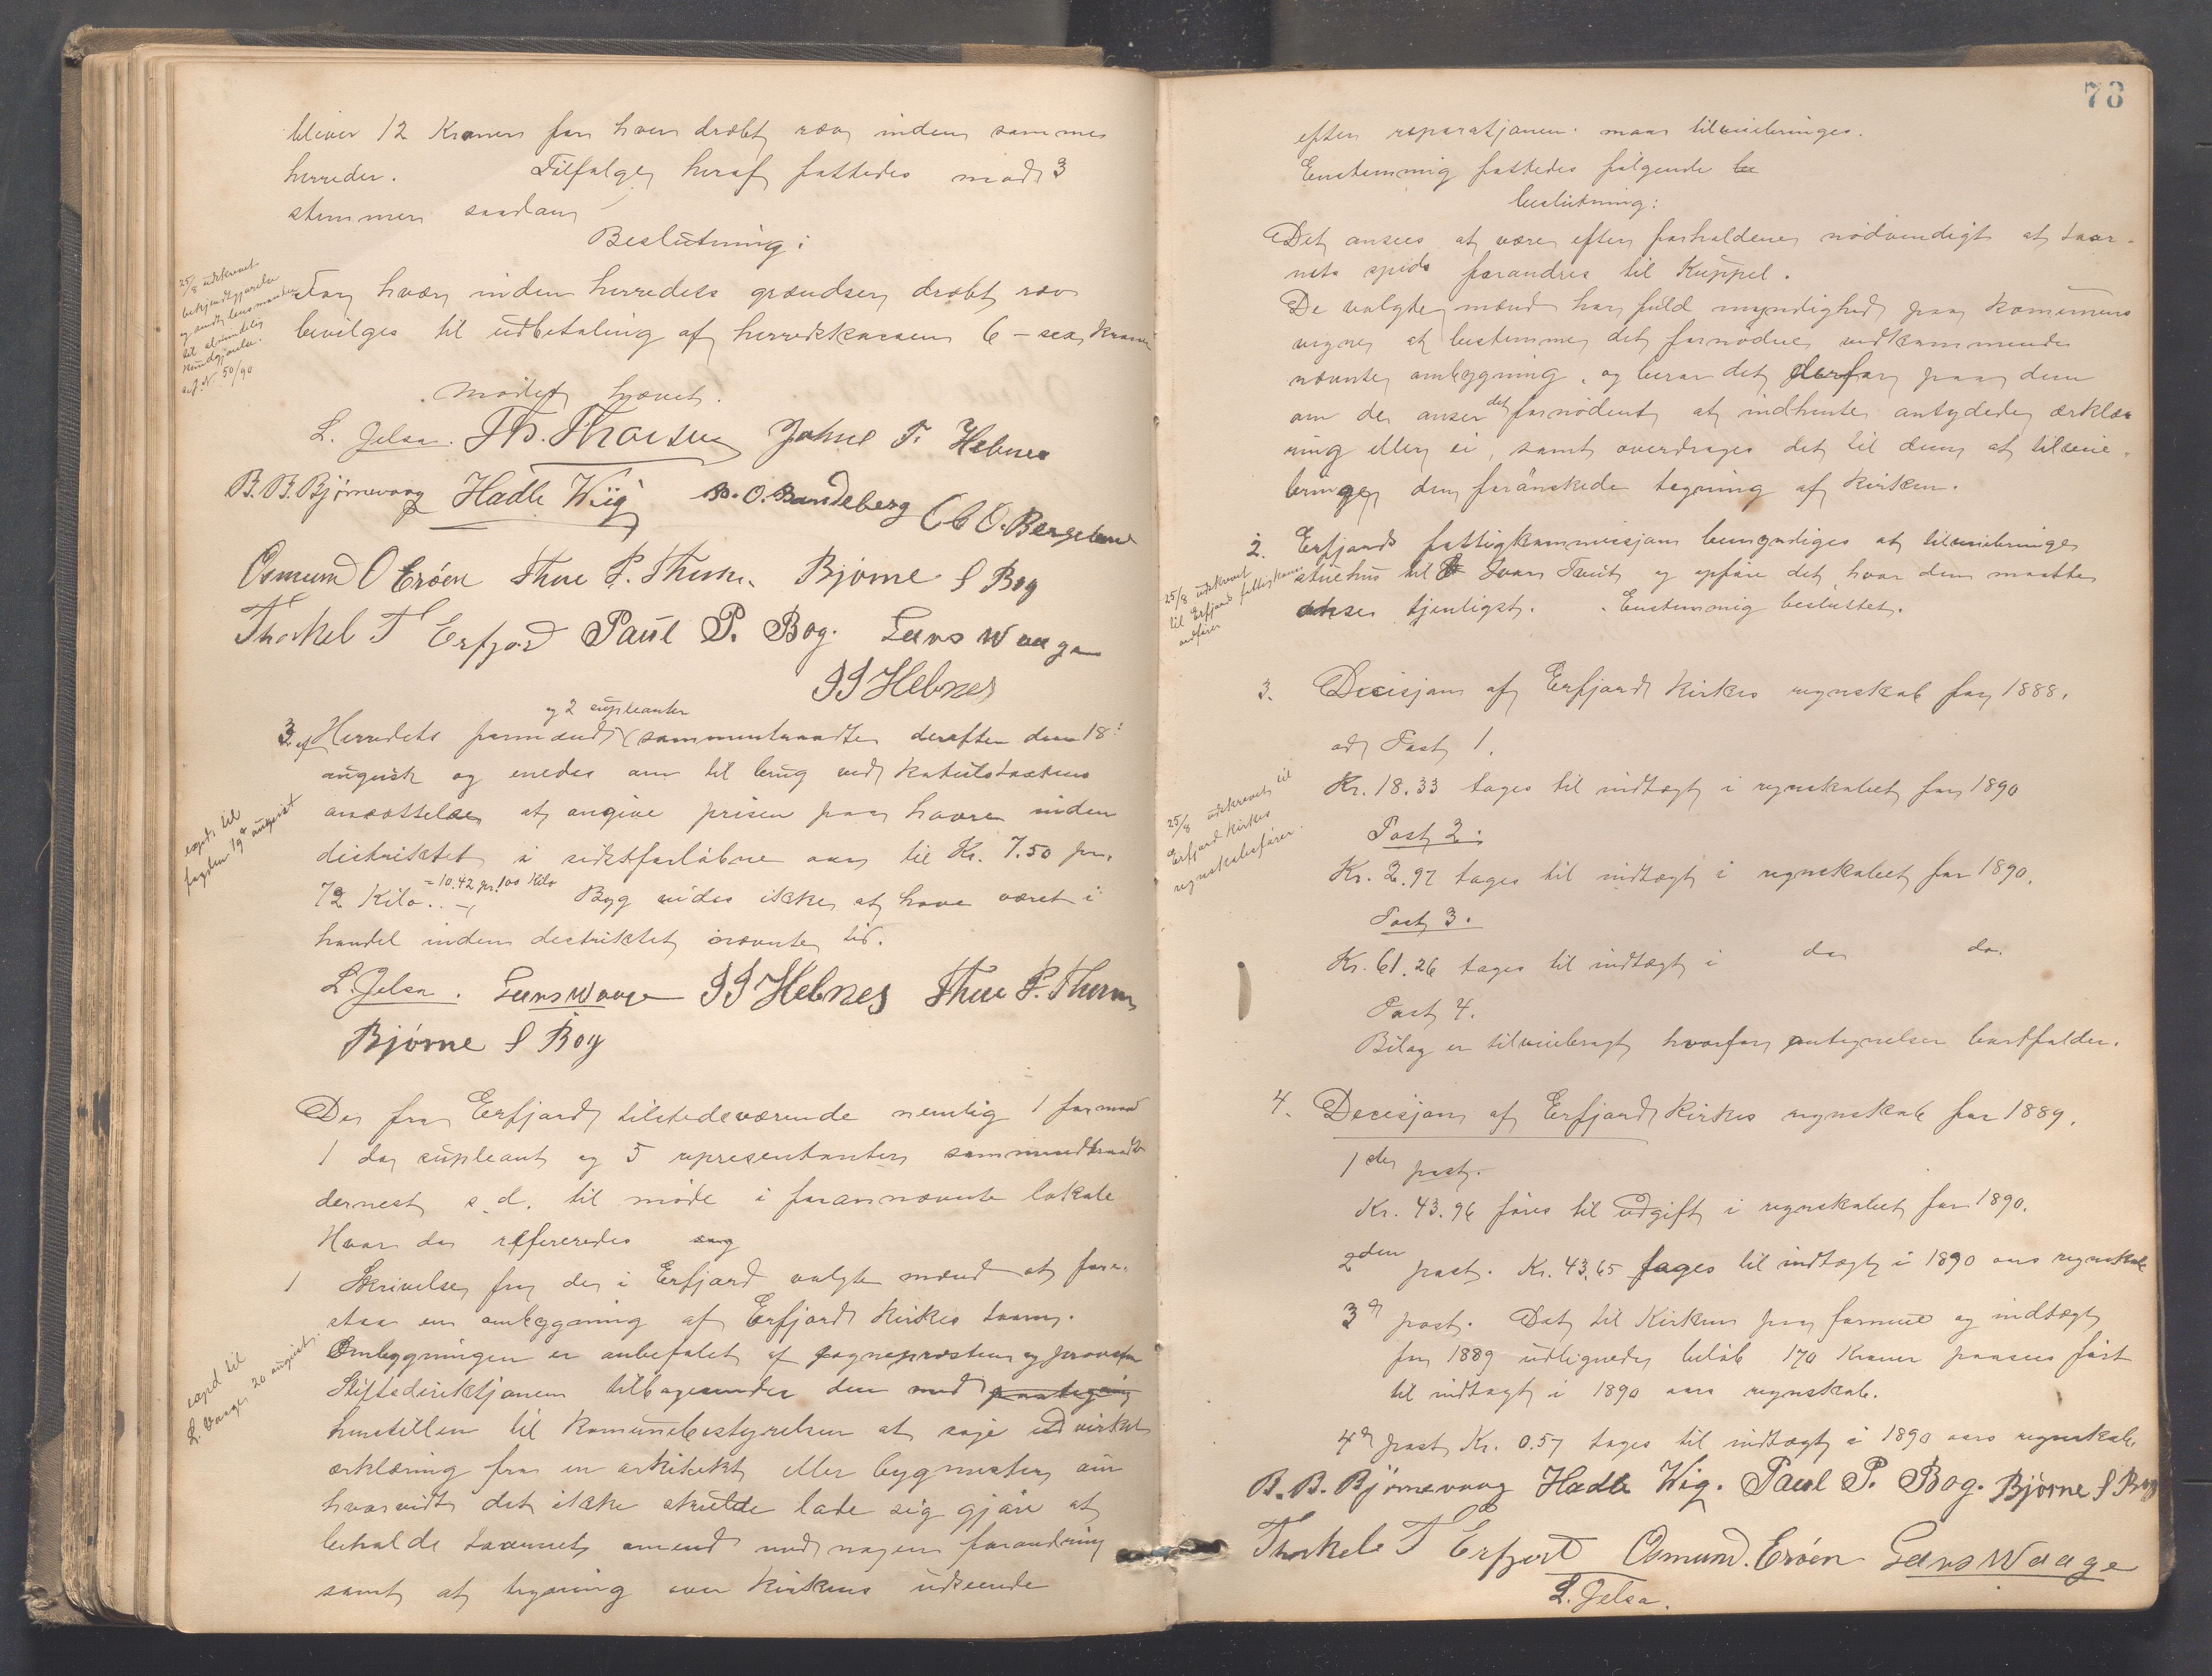 bliver 12 Kroner for hver dræbt ræv inden sammes
herreder. Tilfølge heraf fattedes mod 3
stemmer saadan
Beslutning:
25/8 udskrevet
bekjendtgjørelse
og sendt lensmanden
til almindelig
kundgjørelse.
For hvær inden herredets grændser dræbt ræv
bevilges til udbetaling af herredskassen 6 – sex kroner
Mødet hævet.
L. Jelsa. Th. Thorsen Johne T. Hebnes
B. B. Bjørnevaag Hadle Wiig B. O. Bandeberg O. Bergeland
Osmund O Erøen Thue P. Thuen. Bjørne S Bog
Thorkel T Erfjord Paul P. Bog. Lars Waage
J J Hebnes
og 2 supleanter
3. Herredets formænd sammentraadte derefter den 18:
august og enedes om til brug ved kapitelstaxtens
ansættelse at angive prisen paa havre inden
exped. til
fogden 19de august
distriktet i sidstforløbne aar til Kr. 7.50 pr.
72 Kilo. = 10.42 pr. 100 Kilo Byg vides ikke at have været i
handel inden distriktet i nævnte tid.
L. Jelsa. Lars Waage J J Hebnes Thue P. Thuen
Bjørne S Bog
De fra Erfjord tilstedeværende nemlig 1 formand
1 do supleant og 5 representanter sammentraadte
dernest s. d. til møde i forannævnte lokale
Hvor da refereredes sag
1 Skrivelse fra de i Erfjord valgte mænd at fore-
staa en ombygning af Erfjord kirkes taarn.
exped til
L. Waage 20 august.
Ombygningen er anbefalet af sogneprosten og provsten
Stiftsdirektjonen tilbagesender den med paategning
henstillen til komunebestyrelsen at søge udvirket
erklæring fra en arkitekt eller bygmester om
hvorvidt det ikke skulde lade sig gjøre at
beholde taarnet omend med nogen forandring
samt at tegning over kirkens udseende
78
efter reparatjonen maa tilveiebringes.
Enstemmig fattedes følgende be
beslutning:
Det ansees at være efter forholdene nødvendigt at taar-
nets spids forandres til Kuppel.
De valgte mænd har fuld myndighed paa komunens
vegne at bestemme det fornødne vedkommende
nævnte ombygning, og beror det derfor paa dem
om de anser det fornødent at indhente antydede erklæ-
ring eller ei, samt overdrages det til dem at tilveie-
bringe den forønskede tegning af kirken.
2. Erfjords fattigkommissjon bemyndiges at tilveiebringe
25/8 udskrevet
til Erfjord fattigkoms
ordfører
stuehus til Ivar Tveit og opføre det hvor den maatte
anse tjenligst. Enstemmig besluttet.
3. Decisjon af Erfjord kirkes regnskab for 1888.
ad Post 1.
25/8 udskrevet til
Erfjord kirkes
regnskabsfører.
Kr. 18.33 tages til indtægt i regnskabet for 1890
Post 2.
Kr. 2.97 tages til indtægt i regnskabet for 1890.
Post 3.
Kr. 61.26 tages til indtægt i do do.
Post 4.
Bilag er tilveiebragt hvorfor antegnelsen bortfalder.
4. Decisjon af Erfjord kirkes regnskab for 1889.
1ste post.
Kr. 43.96 føres til udgift i regnskabet for 1890.
2den post. Kr. 43.65 tages til indtægt i 1890 aars regnskab
3de post. Det til Kirken paa formue og indtægt
for 1889 udlignede beløb 170 Kroner paasees ført
til indtægt i 1890 aars regnskab.
4de post Kr. 0.57 tages til indtægt i 1890 aars regnskab.
B. B. Bjørnevaag Hadle Wiig. Paul P. Bog. Bjørne S Bog
Thorkel T Erfjord Osmund. Erøen Lars Waage
L. Jelsa.